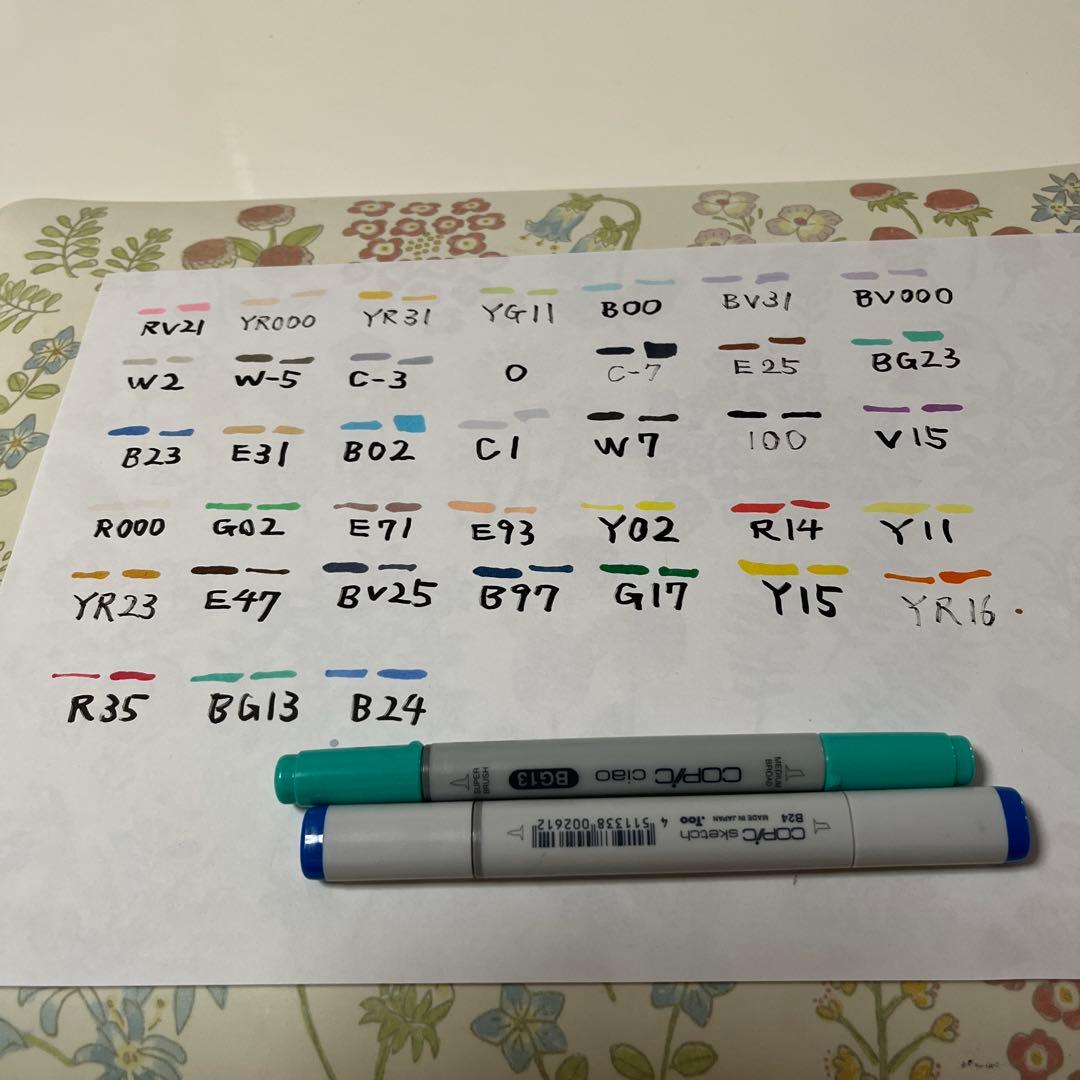 RV21 YR000 YR31 YG11 B00 BV31 BV000
W2 W-5 C-3 0 C-7 E25 BG23
B23 E31 B02 C1 W7 100 V15
R000 G02 E71 E93 Y02 R14 Y11
YR23 E47 BV25 B97 G17 Y15 YR16
R35 BG13 B24
SUPER BRUSH BG13 COPIC ciao MEDIUM BROAD
4 511338 002612 COPIC sketch .Too MADE IN JAPAN B24